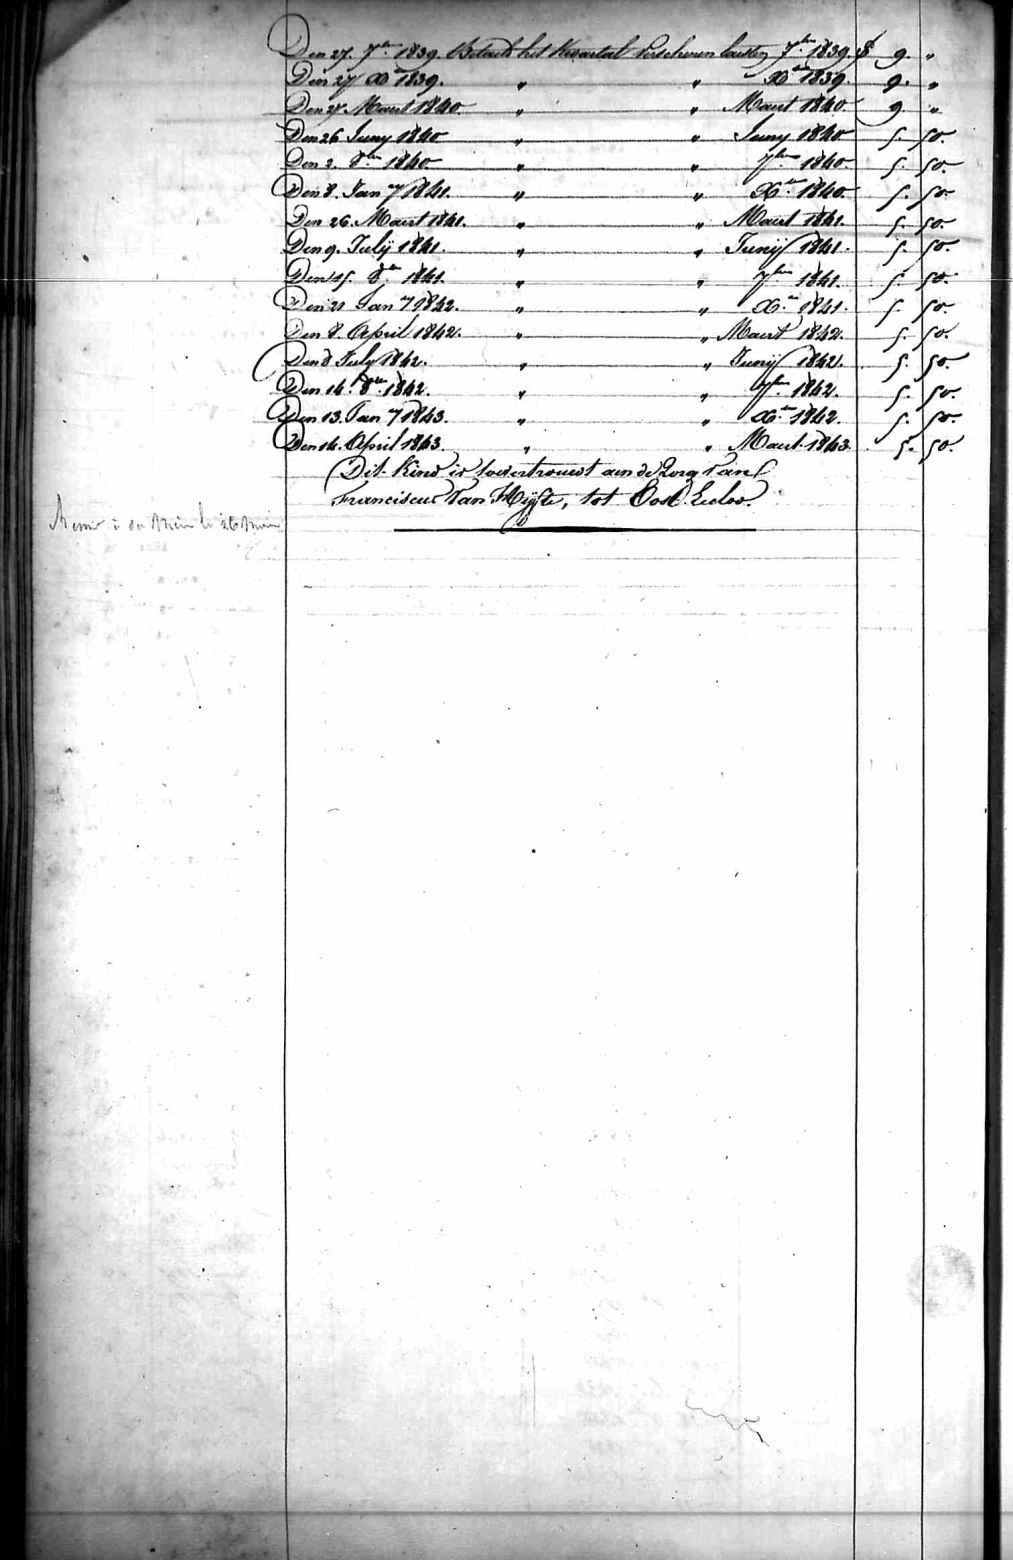 Den 27. 7ber 1839. Betaelt het Kwartal verschenen lausten 7ber 1839. f 9. "
Den 27 Xber 1839. " " Xber 1839. 9. "
Den 27. Maart 1840. " " Maart 1840 9 "
Den 26 Juny 1840 " " Juny 1840 5. 50.
Den 2. 8ber 1840 " " 7ber 1840 5. 50.
Den 8. Jan 7 1841. " " Xber 1840. 5. 50.
Den 26. Maart 1841. " " Maart 1841. 5. 50.
Den 9. July 1841. " " Junij 1841. 5. 50.
Den 15. 8ber 1841. " " 7ber 1841. 5. 50.
Den 21 Jan 7 1842. " " Xber 1841. 5. 50.
Den 8. April 1842. " " Maart 1842. 5. 50.
Den 8 July 1842. " " Junij 1842. 5. 50.
Den 14. 8ber 1842. " " 7ber 1842. 5. 50.
Den 13. Jan 7 1843. " " Xber 1842. 5. 50.
Den 14. April 1843. " " Maart 1843. 5. 50.
Dit Kind is toevertrouwt aen de Zorg van
Franciscus Van Hijfte, tot Oost Eecloo.
à sa Mère le 26